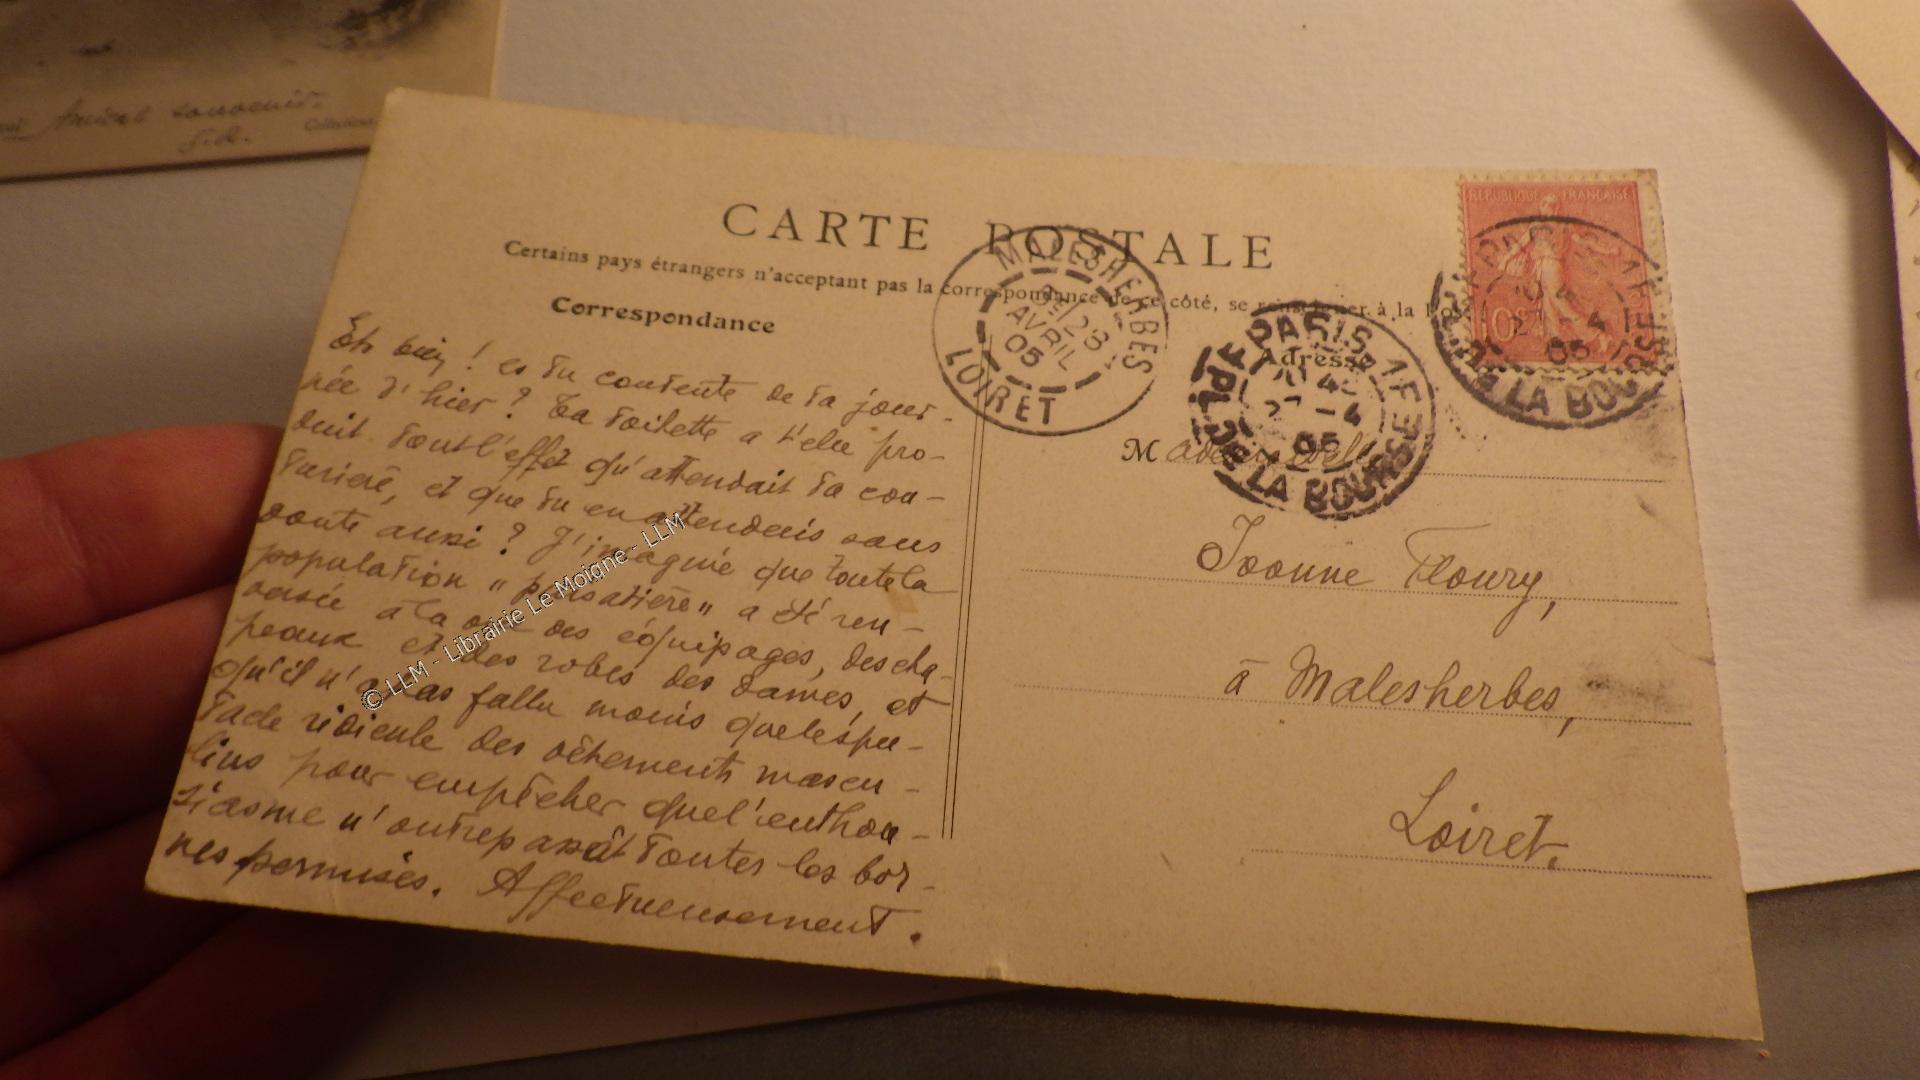 Amical souvenir.
Collection
CARTE POSTALE
Certains pays étrangers n'acceptant pas la correspondance de ce côté, se renseigner à la Poste
Correspondance
Adresse
Eh bien ! es tu contente de ta jour-
née d'hier ? Ta toilette a t'elle pro-
duit tout l'effet qu'attendait ta cou-
turière, et que tu en attendais sans
doute aussi ? J'imagine que toute la
population "pulsatière" a été ren-
versée à la vue des équipages, des cha-
peaux et des robes des dames, et
qu'il n'a pas fallu moins que le spec-
tacle ridicule des vêtements mascu-
lins pour empêcher que l'enthou-
siasme n'outrepassât toutes les bor-
nes permises. Affectueusement.
Mademoiselle
Ivonne Fleury,
à Malesherbes,
Loiret.
MALESHERBES
28
AVRIL
05
LOIRET
PARIS-1
27-4
05
PL. DE LA BOURSE
REPUBLIQUE FRANÇAISE
10
PARIS 1
27-4
05
DE LA BOURSE
© LLM - Librairie Le Moigne - LLM